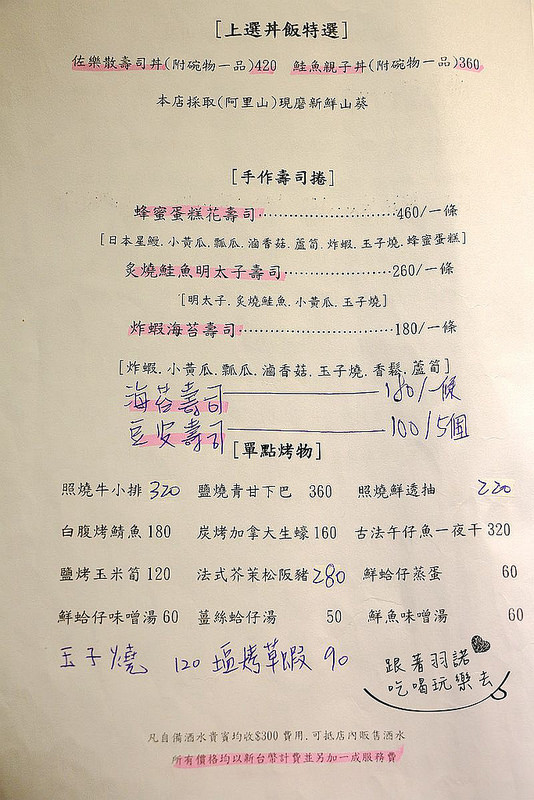 [上選丼飯特選]
佐樂散壽司丼(附碗物一品)420 鮭魚親子丼(附碗物一品)360
本店採取(阿里山)現磨新鮮山葵
[手作壽司捲]
蜂蜜蛋糕花壽司........................460/一條
[日本星鰻.小黃瓜.瓢瓜.滷香菇.蘆筍.炸蝦.玉子燒.蜂蜜蛋糕]
炙燒鮭魚明太子壽司...................260/一條
[明太子.炙燒鮭魚.小黃瓜.玉子燒]
炸蝦海苔壽司...........................180/一條
[炸蝦.小黃瓜.瓢瓜.滷香菇.玉子燒.香鬆.蘆筍]
海苔壽司 180/一條
豆皮壽司 100/5個
[單點烤物]
照燒牛小排 320 鹽燒青甘下巴 360 照燒鮮透抽 220
白腹烤鯖魚 180 炭烤加拿大生蠔 160 古法午仔魚一夜干 320
鹽烤玉米筍 120 法式芥茉松阪豬 280 鮮蛤仔蒸蛋 60
鮮蛤仔味噌湯 60 薑絲蛤仔湯 50 鮮魚味噌湯 60
玉子燒 120 塩烤草蝦 90
跟著羽諾
吃喝玩樂去
凡自備酒水貴賓均收$300費用.可抵店內販售酒水
所有價格均以新台幣計費並另加一成服務費